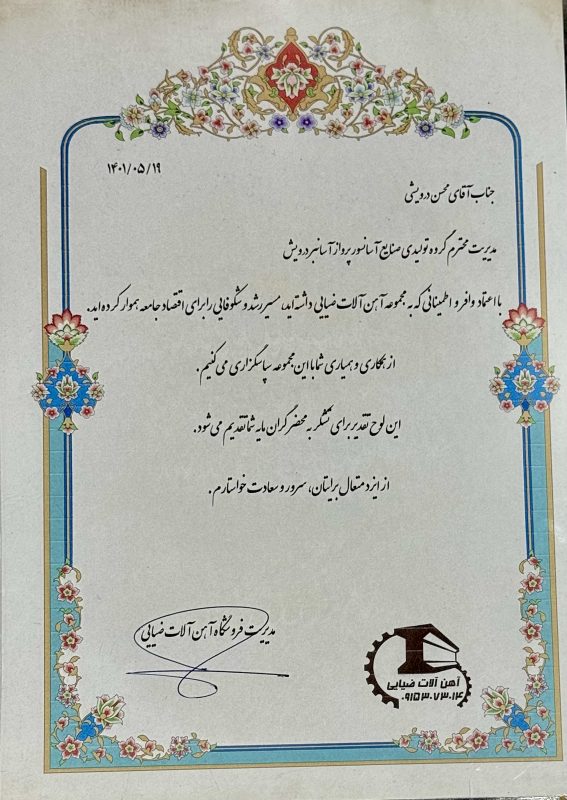 ۱۴۰۱/۰۵/۱۹
جناب آقای محسن درویشی
مدیریت محترم گروه تولیدی صنایع آسانسور پرواز آسانبر درویش
با اعتماد وافر و اطمینانی که به مجموعه آهن آلات ضیایی داشته اید، مسیر رشد و شکوفایی را برای اقتصاد جامعه هموار کرده اید.
از همکاری و همیاری شما با این مجموعه سپاسگزاری می کنیم.
این لوح تقدیر برای تشکر به محضر گران مایه شما تقدیم می شود.
از ایزد متعال برایتان، سرور و سعادت خواستارم.
مدیریت فروشگاه آهن آلات ضیایی
آهن آلات ضیایی
۰۹۱۵۳۰۷۳۰۱۴